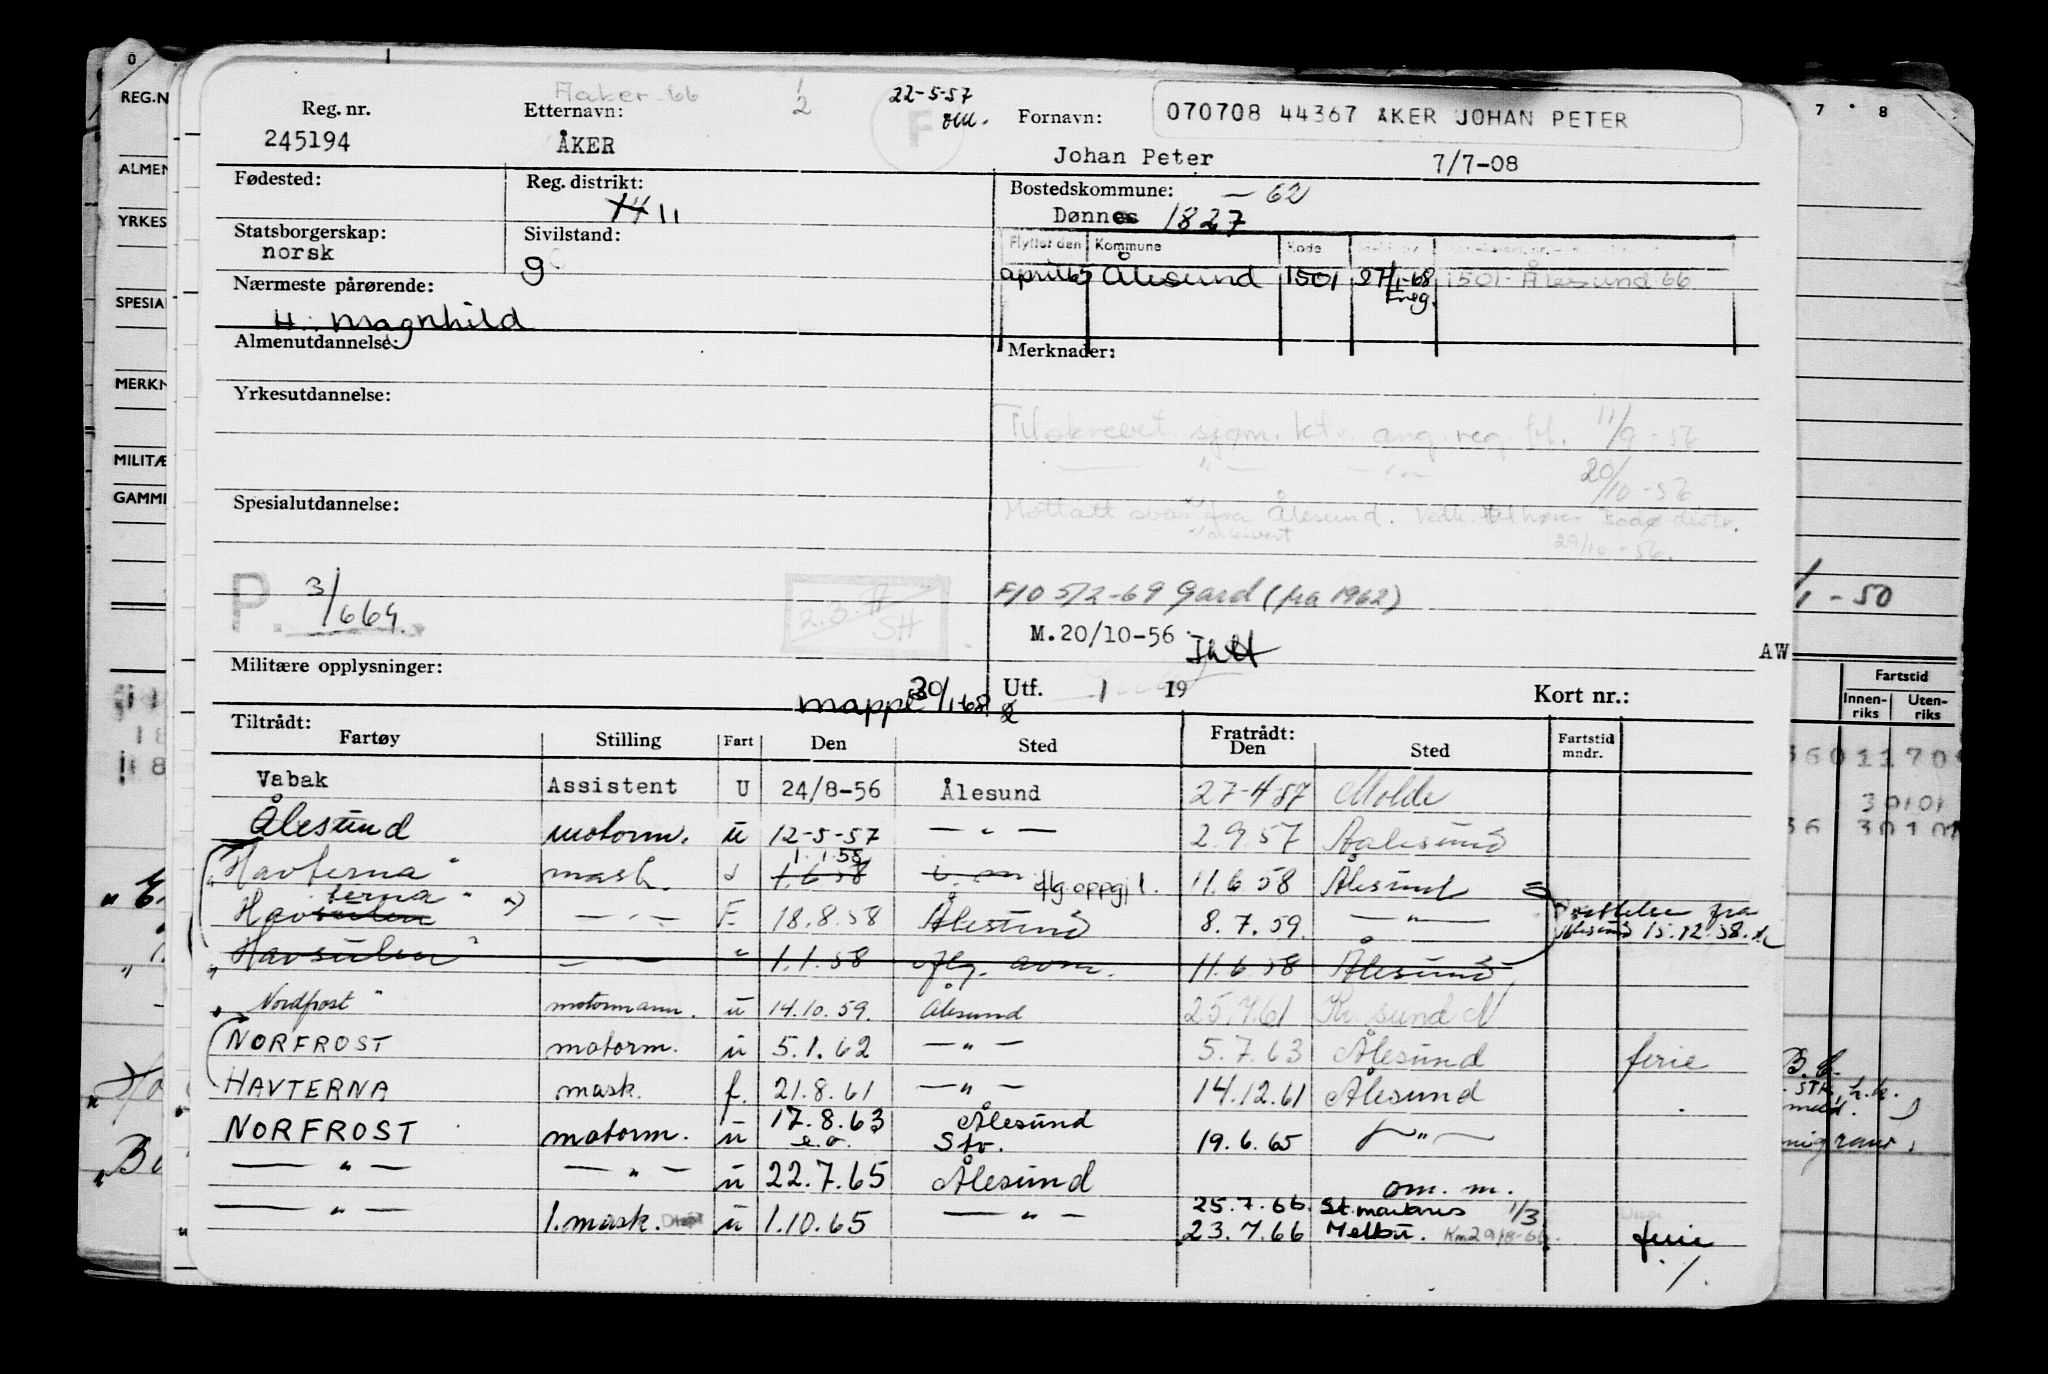 Aaker-66
1/2
22-5-57
Reg. nr. Etternavn: Fornavn: 070708 44367 ÅKER JOHAN PETER
245194 ÅKER F Johan Peter 7/7-08
Fødested: Reg. distrikt: Bostedskommune: — 62
14 11 Dønnes 1827
Statsborgerskap: Sivilstand: Flyttet den Kommune Kode
norsk g april 65 Ålesund 1501 27/1-68 1501-Ålesund 66
Nærmeste pårørende: Freg.
H. Magnhild
Almenutdannelse: Merknader:
Yrkesutdannelse:
Tilskrevet sjøm. ktr. ang. reg. kt. 11/9-56
— " — 20/10-56
Spesialutdannelse: Mottatt svar fra Ålesund. Vedk. tilhører Bodø distr.
arkivert 29/10-56.
P. 3/664. F/O 5/2-69 Gard (fra 1962)
M.20/10-56
AW
Militære opplysninger: mappe 30/1-68 Utf. 1 19 Kort nr.:
Tiltrådt: Fratrådt:
Fartøy Stilling Fart Den Sted Den Sted Fartstid mndr.
Vabak Assistent U 24/8-56 Ålesund 27-4-57 Molde
Ålesund motorm. u 12-5-57 — " — 2.9.57 Aalesund
1.1.58
"Havterna" mask. 1.6.58 flg. oppgj. 11.6.58 Ålesund
terna
Havsulen — " — F 18.8.58 Ålesund 8.7.59. — " — Rettelse fra Ålesund 15.12.58.
"Havsulen" — — " 1.1.58 flg. avm. 11.6.58 Ålesund
"Nordfrost" motormann. u 14.10.59. Ålesund 25.7.61 Kr. sund N
NORFROST motorm. u 5.1.62 — " — 5.7.63 Ålesund ferie
HAVTERNA mask. f. 21.8.61 — " — 14.12.61 Ålesund
NORFROST motorm. u 17.8.63 Ålesund 19.6.65 — " —
e.o. Stv.
— " — — " — u 22.7.65 Ålesund om. m.
25.7.66. St. mønstr. 1/3
— " — 1. mask. u 1.10.65 — " — 23.7.66 Melbu. Km 29/8-66. ferie
REG.N
ALMEN
YRKES
SPESIA
MERKN
MILITÆ
GAMME
7 8
1/1-50
Fartstid
Innen-riks Uten-riks